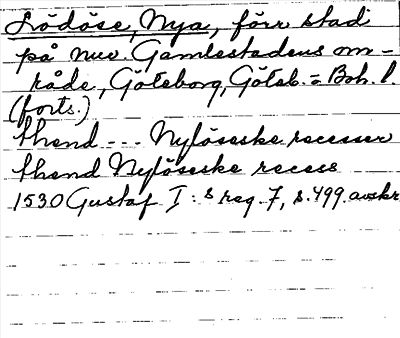 Lödöse, Nya, förr stad
på nuv. Gamlestadens om-
råde, Göteborg, Göteb. = Boh. l.
(forts.)
thend --- Nylöseske recesser
thend Nylöseske recess
1530 Gustaf I:s reg. 7, s. 499. avskr.